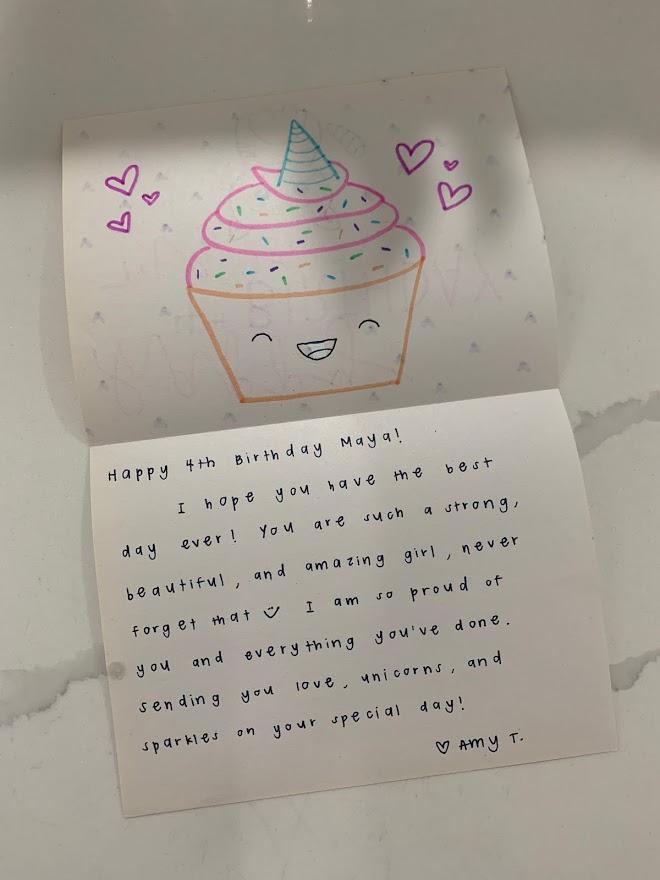 Happy 4th Birthday Maya!
I hope you have the best
day ever! You are such a strong,
beautiful, and amazing girl, never
forget that I am so proud of
you and everything you've done.
sending you love, unicorns, and
sparkles on your special day!
♡ Amy T.